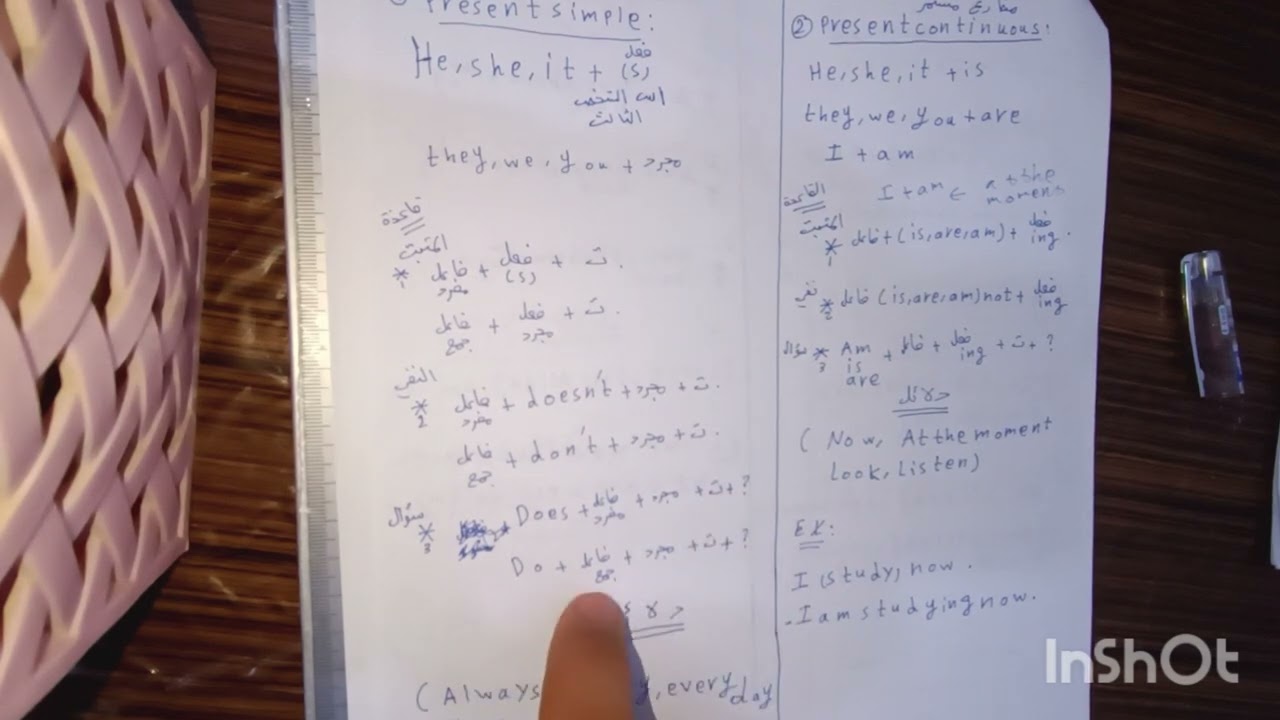 ① Present simple:
He, she, it + فعل (s)
الشخص
الثالث
they, we, you + مجرد
قاعدة
المثبت
* 1 فاعل مفرد + فعل (s) + ت.
فاعل جمع + فعل مجرد + ت.
النفي
* 2 فاعل مفرد + doesn't + مجرد + ت.
فاعل جمع + don't + مجرد + ت.
سؤال
* 3 Does + فاعل مفرد + مجرد + ت + ?
Do + فاعل جمع + مجرد + ت + ?
(Always y, every day
مضارع مستمر
② Present continuous:
He, she, it + is
they, we, you + are
I + am
القاعدة
I + am ← at the moment
المثبت
* 1 فاعل + (is, are, am) + فعل ing.
نفي * 2 فاعل (is, are, am) not + فعل ing
سؤال * 3 Am is are + فاعل + فعل ing + ت + ?
دلائل
(Now, At the moment
Look, Listen)
EX:
I (study) now.
- I am studying now.
InShOt